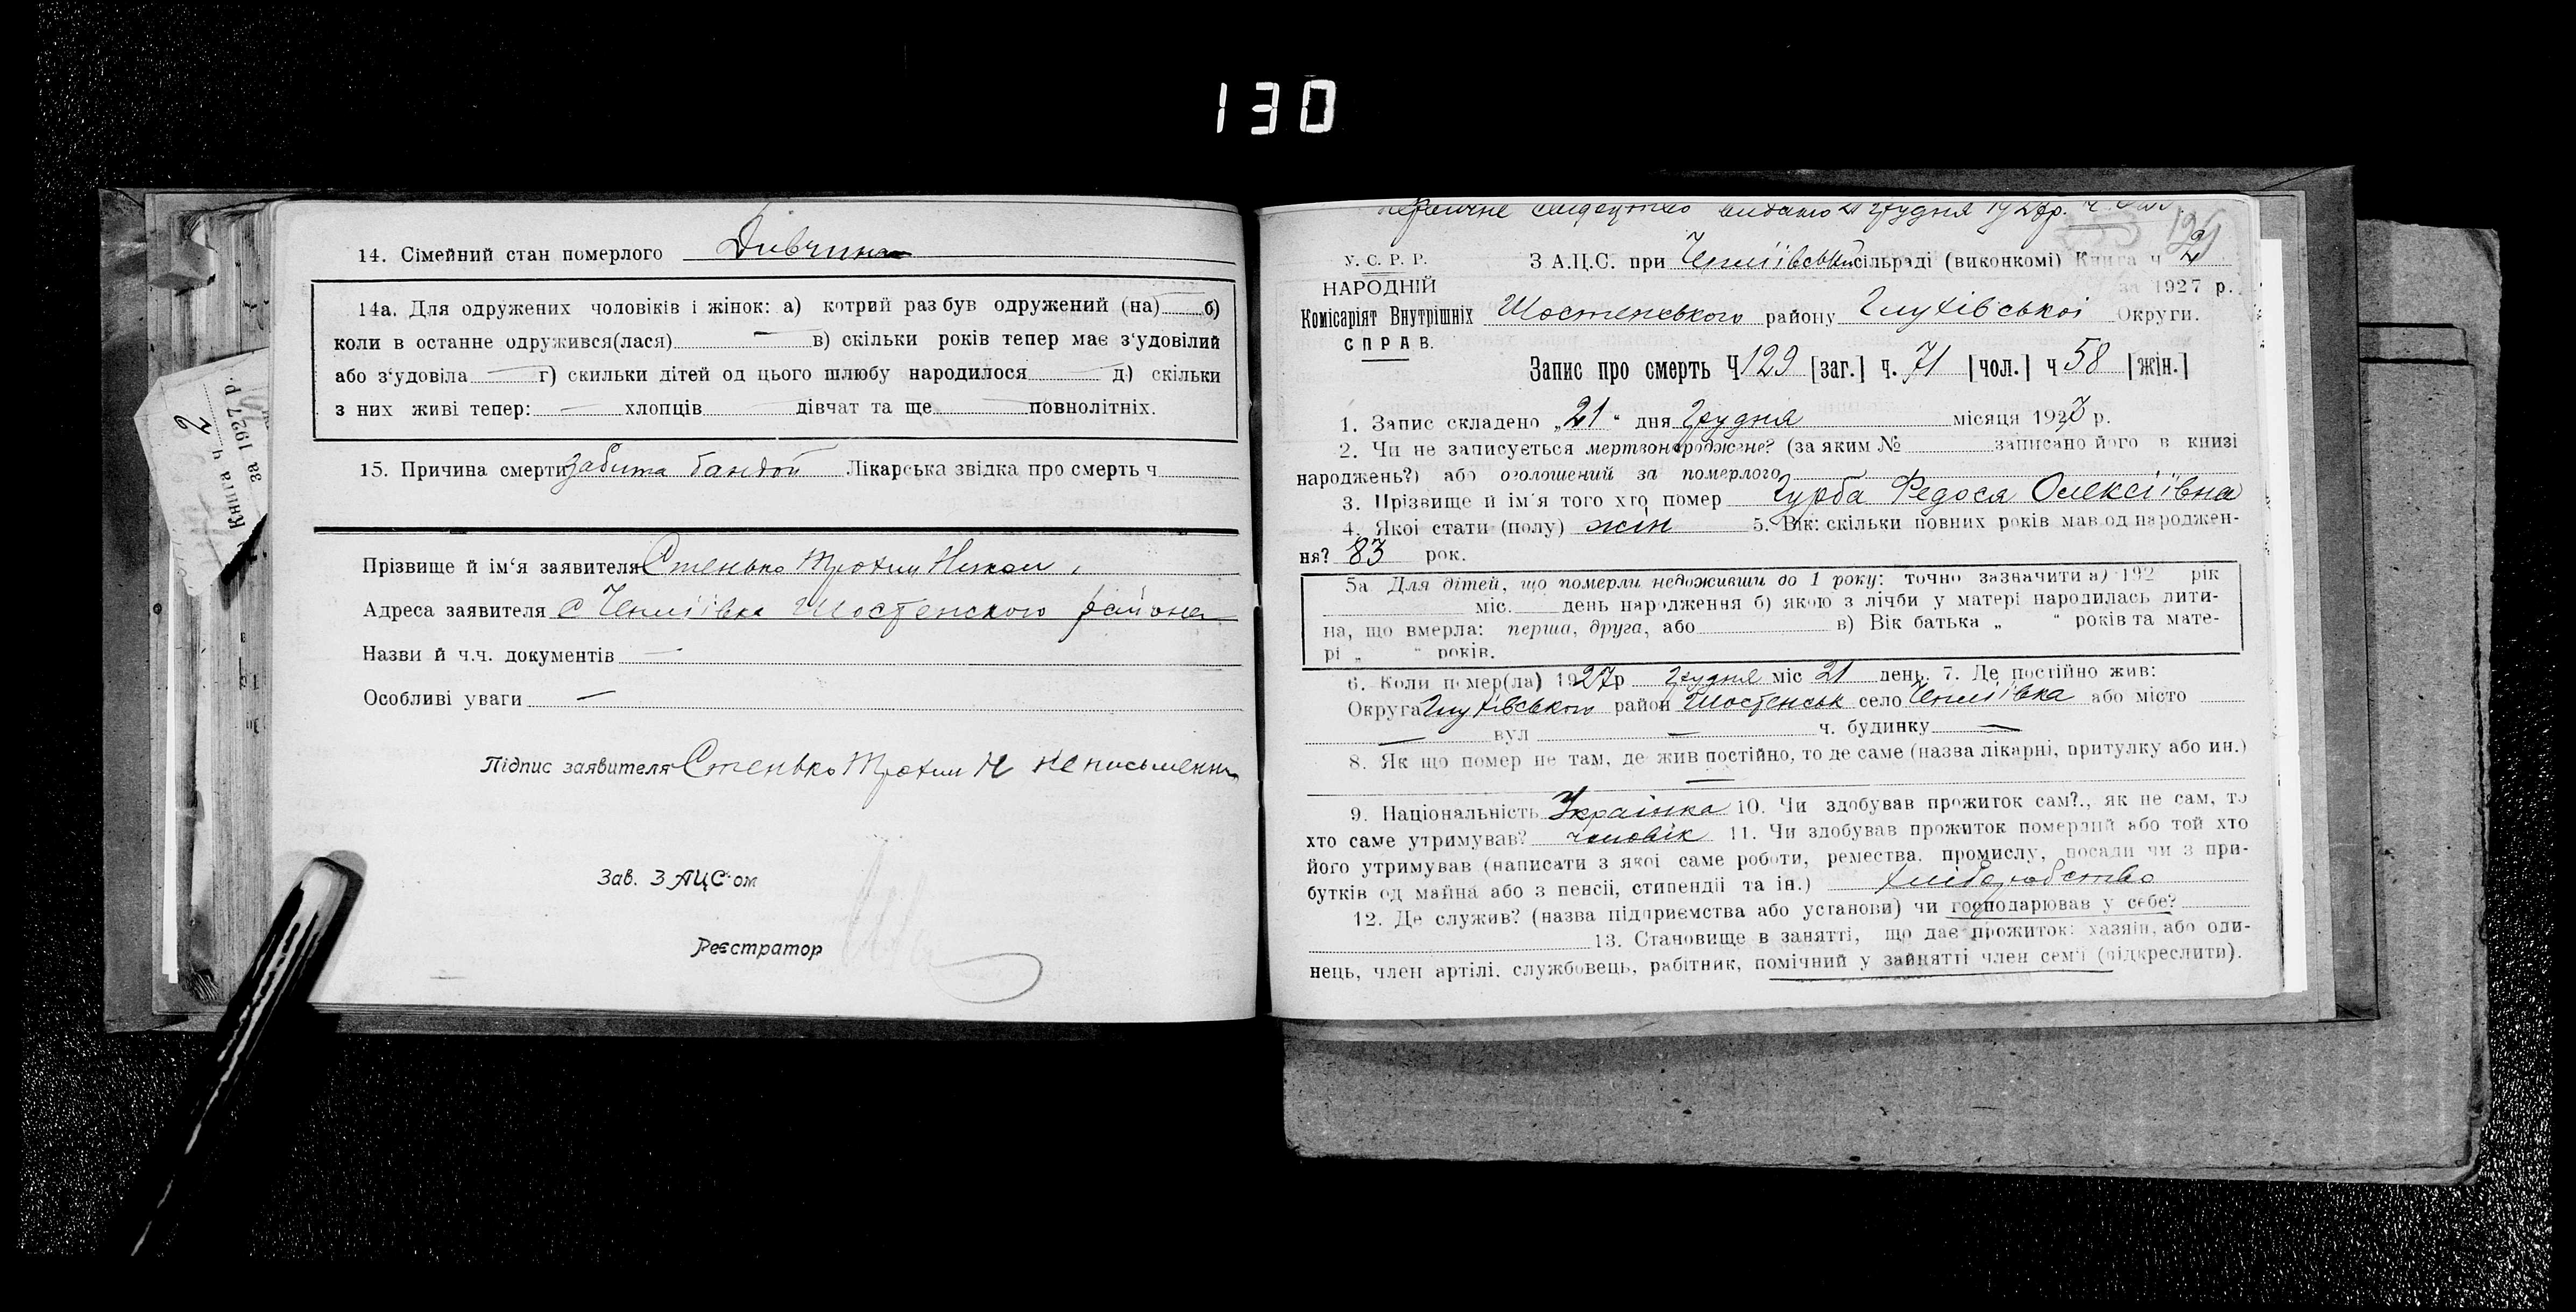 130
14. Сімейний стан померлого Дивчина
14а. Для одружених чоловіків і жінок: а) котрий раз був одружений (на) — б)
коли в останне одружився(лася) — в) скільки років тепер має з'удовілий
або з'удовіла — г) скильки дітей од цього шлюбу народилося — д) скільки
з них живі тепер: — хлопців — дівчат та ще — повнолітніх.
15. Причина смерти забита бандой Лікарська звідка про смерть ч
Прізвище й ім'я заявителя Стенько Трохим Никол
Адреса заявителя с Чепліївка Шостенского района
Назви й ч.ч. документів —
Особливі уваги —
Підпис заявителя Стенько Трохим Н неписьменн
Зав. ЗАЦС'ом
Реєстратор
Книга ч 2
за 1927 р.
свідоцтво видано 21 грудня 1927р. ч.
129
У. С. Р. Р.
НАРОДНІЙ
Комісаріят Внутрішніх
СПРАВ.
З А.Ц.С. при Чепліївській сільраді (виконкомі) Книга ч 2
за 1927 р.
Шостенського району Глухівської Округи.
Запис про смерть Ч 129 [заг.] ч. 71 [чол.] ч 58 [жін.]
1. Запис складено „21“ дня Грудня місяця 1927 р.
2. Чи не записується мертвонароджене? (за яким № записано його в книзі
народжень?) або оголошений за померлого
3. Прізвище й ім'я того хто помер Гурба Федося Олексіївна
4. Якої стати (полу) жін 5. Вік: скільки повних років мав од народжен-
ня? 83 рок.
5а Для дітей, що померли недоживши до 1 року: точно зазначити а) 192 рік
міс. день народження б) якою з лічби у матері народилась дити-
на, що вмерла: перша, друга, або в) Вік батька „ “ років та мате-
рі „ “ років.
6. Коли помер(ла) 1927р грудня міс 21 день. 7. Де постійно жив:
Округа Глухівського район Шостенськ село Чепліївка або місто —
— вул — ч. будинку —
8. Як що помер не там, де жив постійно, то де саме (назва лікарні, притулку або ин.)
—
9. Національність Українка 10. Чи здобував прожиток сам?., як не сам, то
хто саме утримував? чоловік 11. Чи здобував прожиток померлий або той хто
його утримував (написати з якої саме роботи, ремества, промислу, посади чи з при-
бутків од майна або з пенсії, стипендії та ін.) хліборобство
12. Де служив? (назва підприємства або установи) чи господарював у себе?
13. Становище в занятті, що дає прожиток: хазяїн, або оди-
нець, член артілі, службовець, рабітник, помічний у зайнятті член сем'ї (підкреслити).